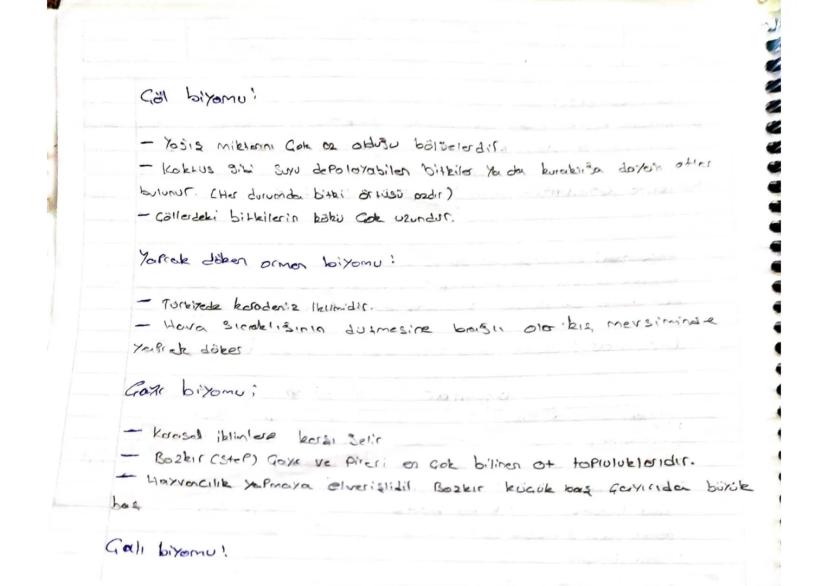 Çöl biyomu:
- Yağış miktarını Çok az olduğu bölgelerdir.
- Kaktüs gibi Suyu depolayabilen bitkiler ya da kuraklığa dayanan otlar
bulunur. (Her durumda bitki örtüsü azdır)
- Çöllerdeki bitkilerin kökü Çok uzundur.
Yaprak döken orman biyomu:
- Türkiyede karadeniz iklimidir.
- Hava Sıcaklığının düşmesine bağlı olarak kış mevsiminde
yaprak döker
Çayır biyomu:
- Karasal iklimlere karşı gelir
- Bozkır (step) Çayır ve en çok bilinen ot topluluklarıdır.
- Hayvancılık yapmaya elverişlidir Bozkır küçük baş Çayırıda büyük
baş
Çalı biyomu: